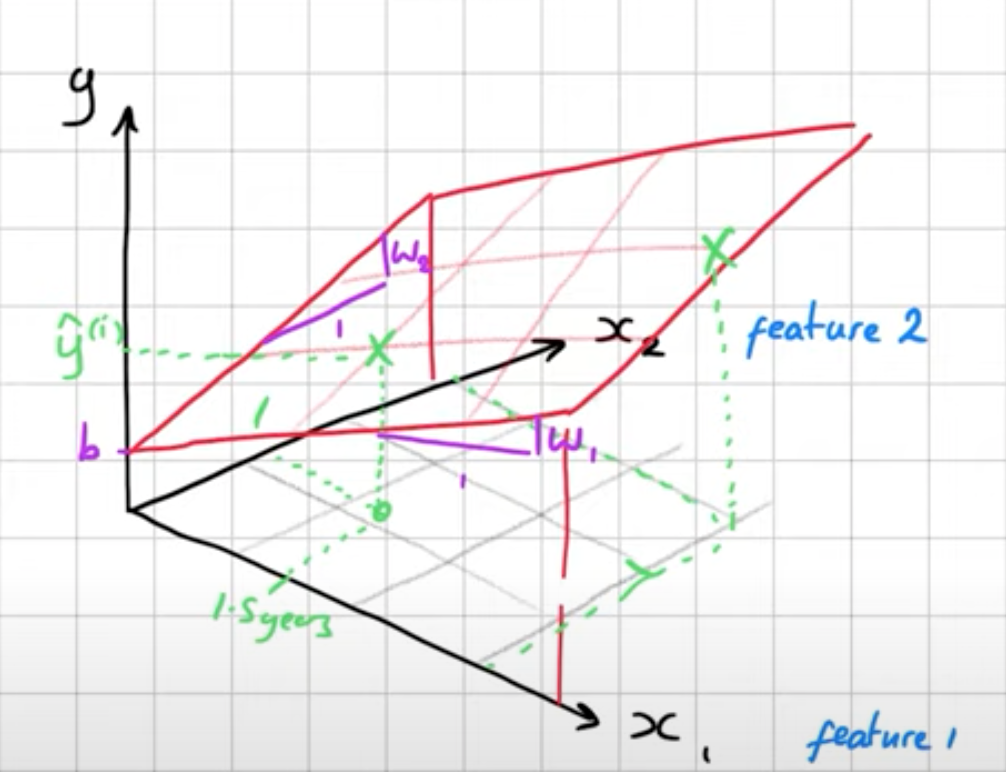 y
W₂
1
x₂
feature 2
ŷ⁽ⁱ⁾
1
b
W₁
1
1.5 years
x₁
feature 1